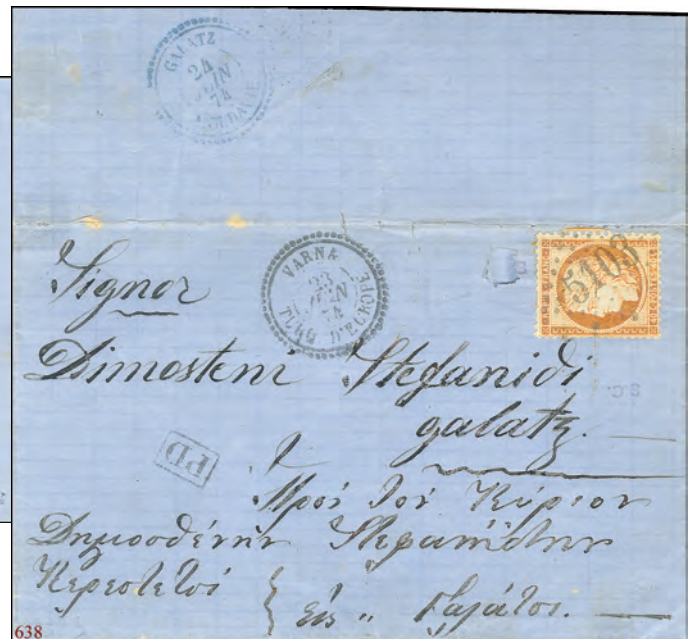 GALATZ
24
JUIN
74
MOLDAVIE
VARNA
23
JUIN
74
TURQ. D'EUROPE
5103
Signor
Dimosteni Stefanidi
galatz.
PD
S.C.
Πρός τον Κύριον
Δημοσθένην Στεφανίδην
εις " Γαλάτσι.
638